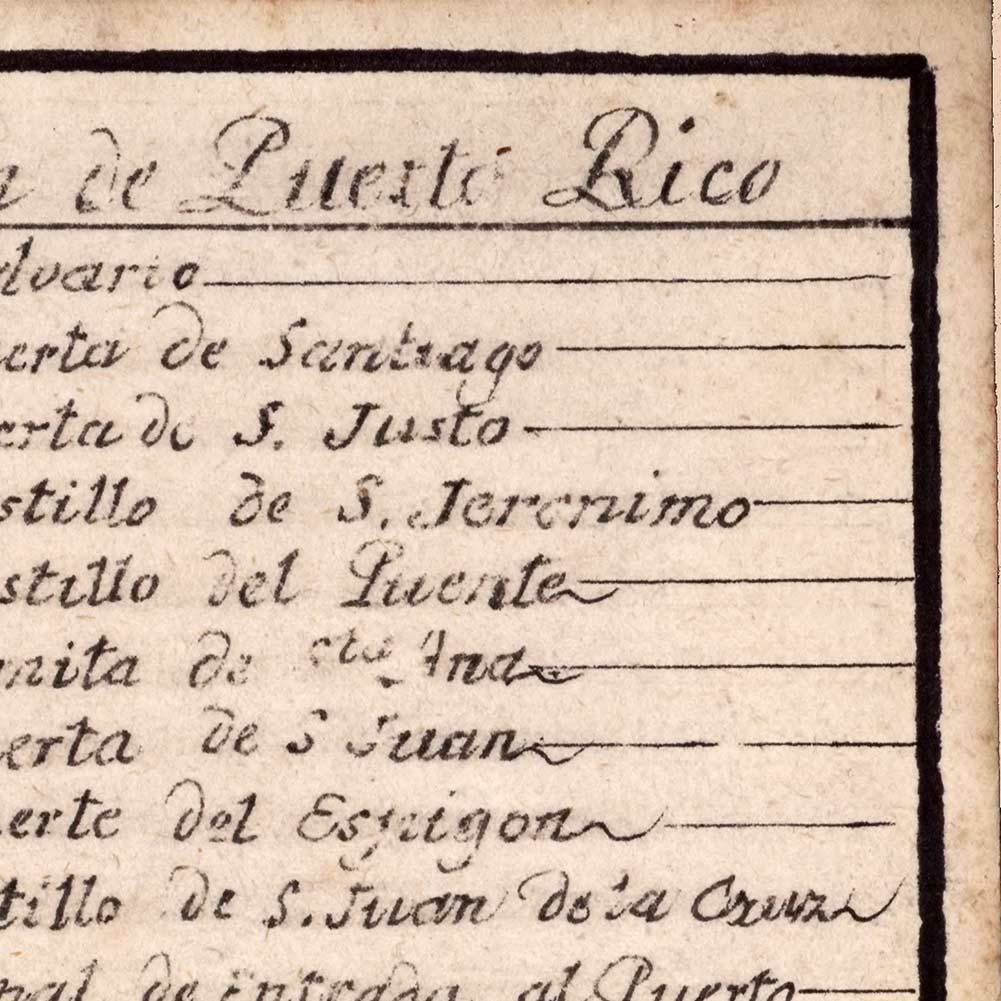 de Puerto Rico
dvario
erta de Santiago
erta de S. Justo
stillo de S. Jeronimo
stillo del Puente
mita de Sta Ana
erta de S Juan
erte del Espigon
tillo de S. Juan de la Cruz
nal de Entrada al Puerto